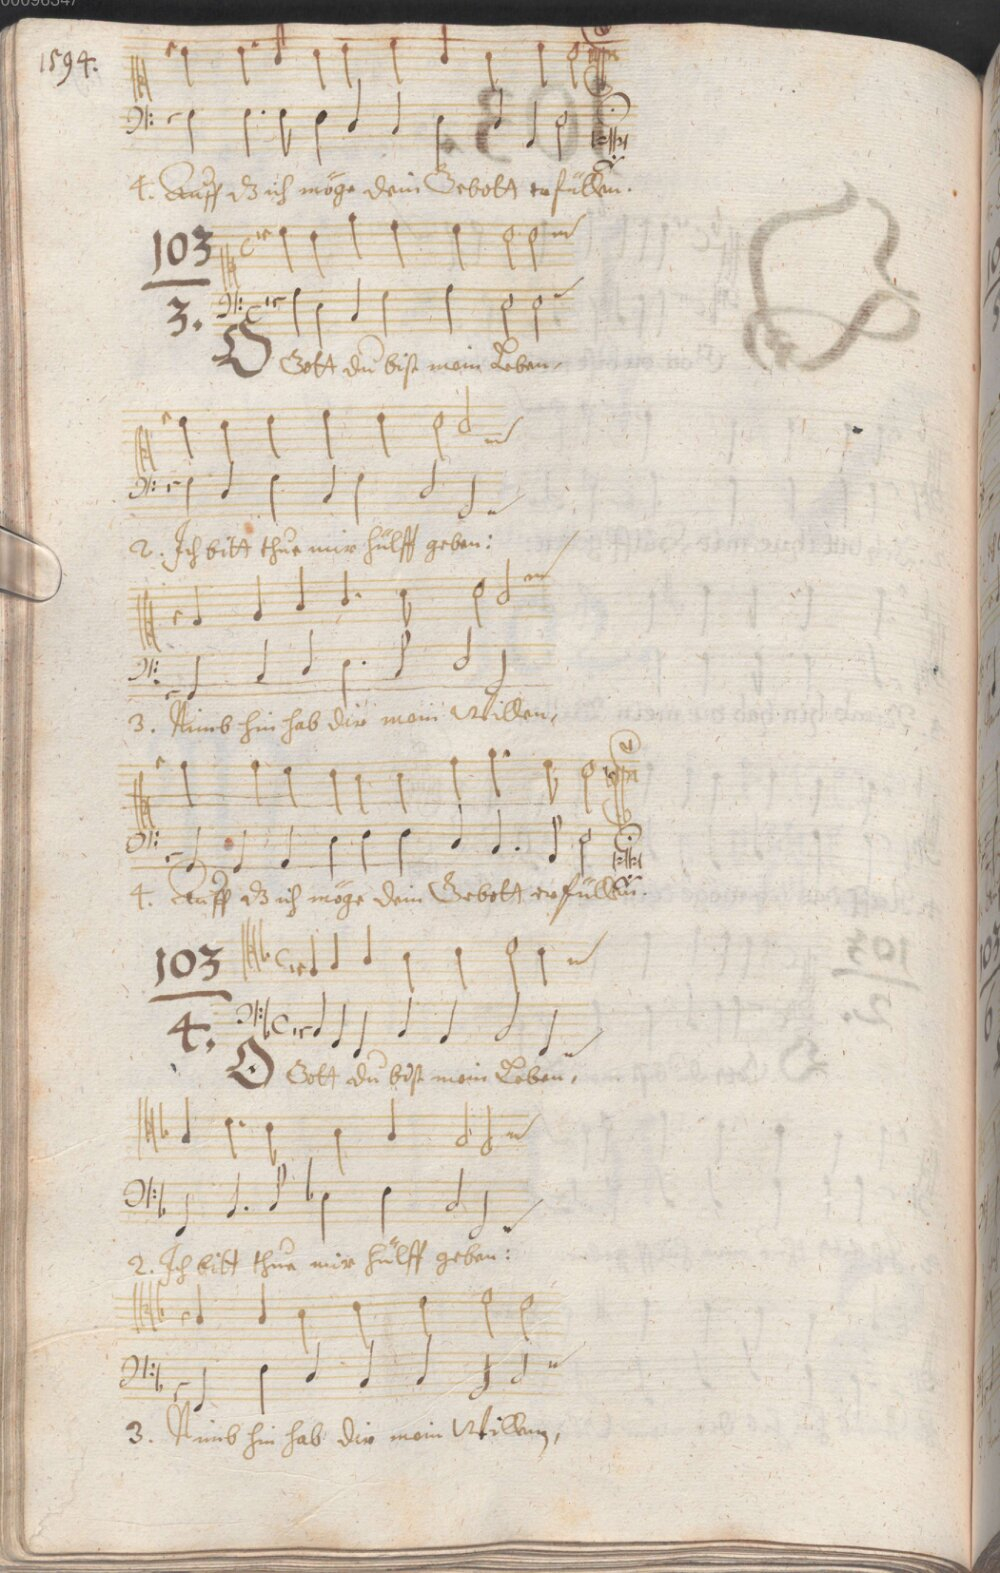 00096347
1594.
4. Auff dz ich möge dein Gebott erfüllen.
103
3.
O Gott du bist mein Leben,
2. Ich bitt thue mir hülff geben:
3. Nimb hin hab dir mein Willen,
4. Auff dz ich möge dein Gebott erfüllen.
103
4.
O Gott du bist mein Leben,
2. Ich bitt thue mir hülff geben:
3. Nimb hin hab dir mein Willen,